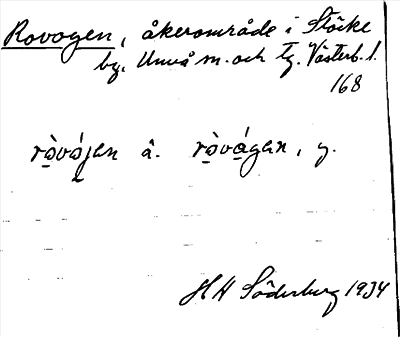 Rovogen, åkerområde i Stöcke
by, Umeå m. och tg. Västerb. l.
168
ròvójen â. ròvágan, y.
HH Söderberg 1934